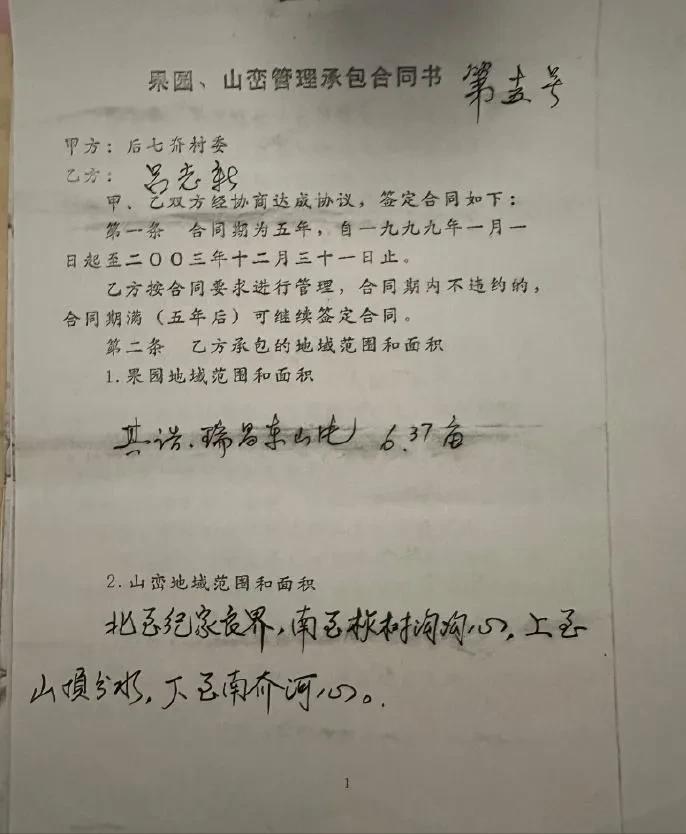 果园、山峦管理承包合同书 第十五号
甲方：后七夼村委
乙方：吕志新
甲、乙双方经协商达成协议，签定合同如下：
第一条 合同期为五年，自一九九九年一月一
日起至二〇〇三年十二月三十一日止。
乙方按合同要求进行管理，合同期内不违约的，
合同期满（五年后）可继续签定合同。
第二条 乙方承包的地域范围和面积
1.果园地域范围和面积
瑞昌东山 6.37亩
2.山峦地域范围和面积
北至纪家夼界，南至 树沟沟心，上至
山顶分水，下至南夼河心。
1